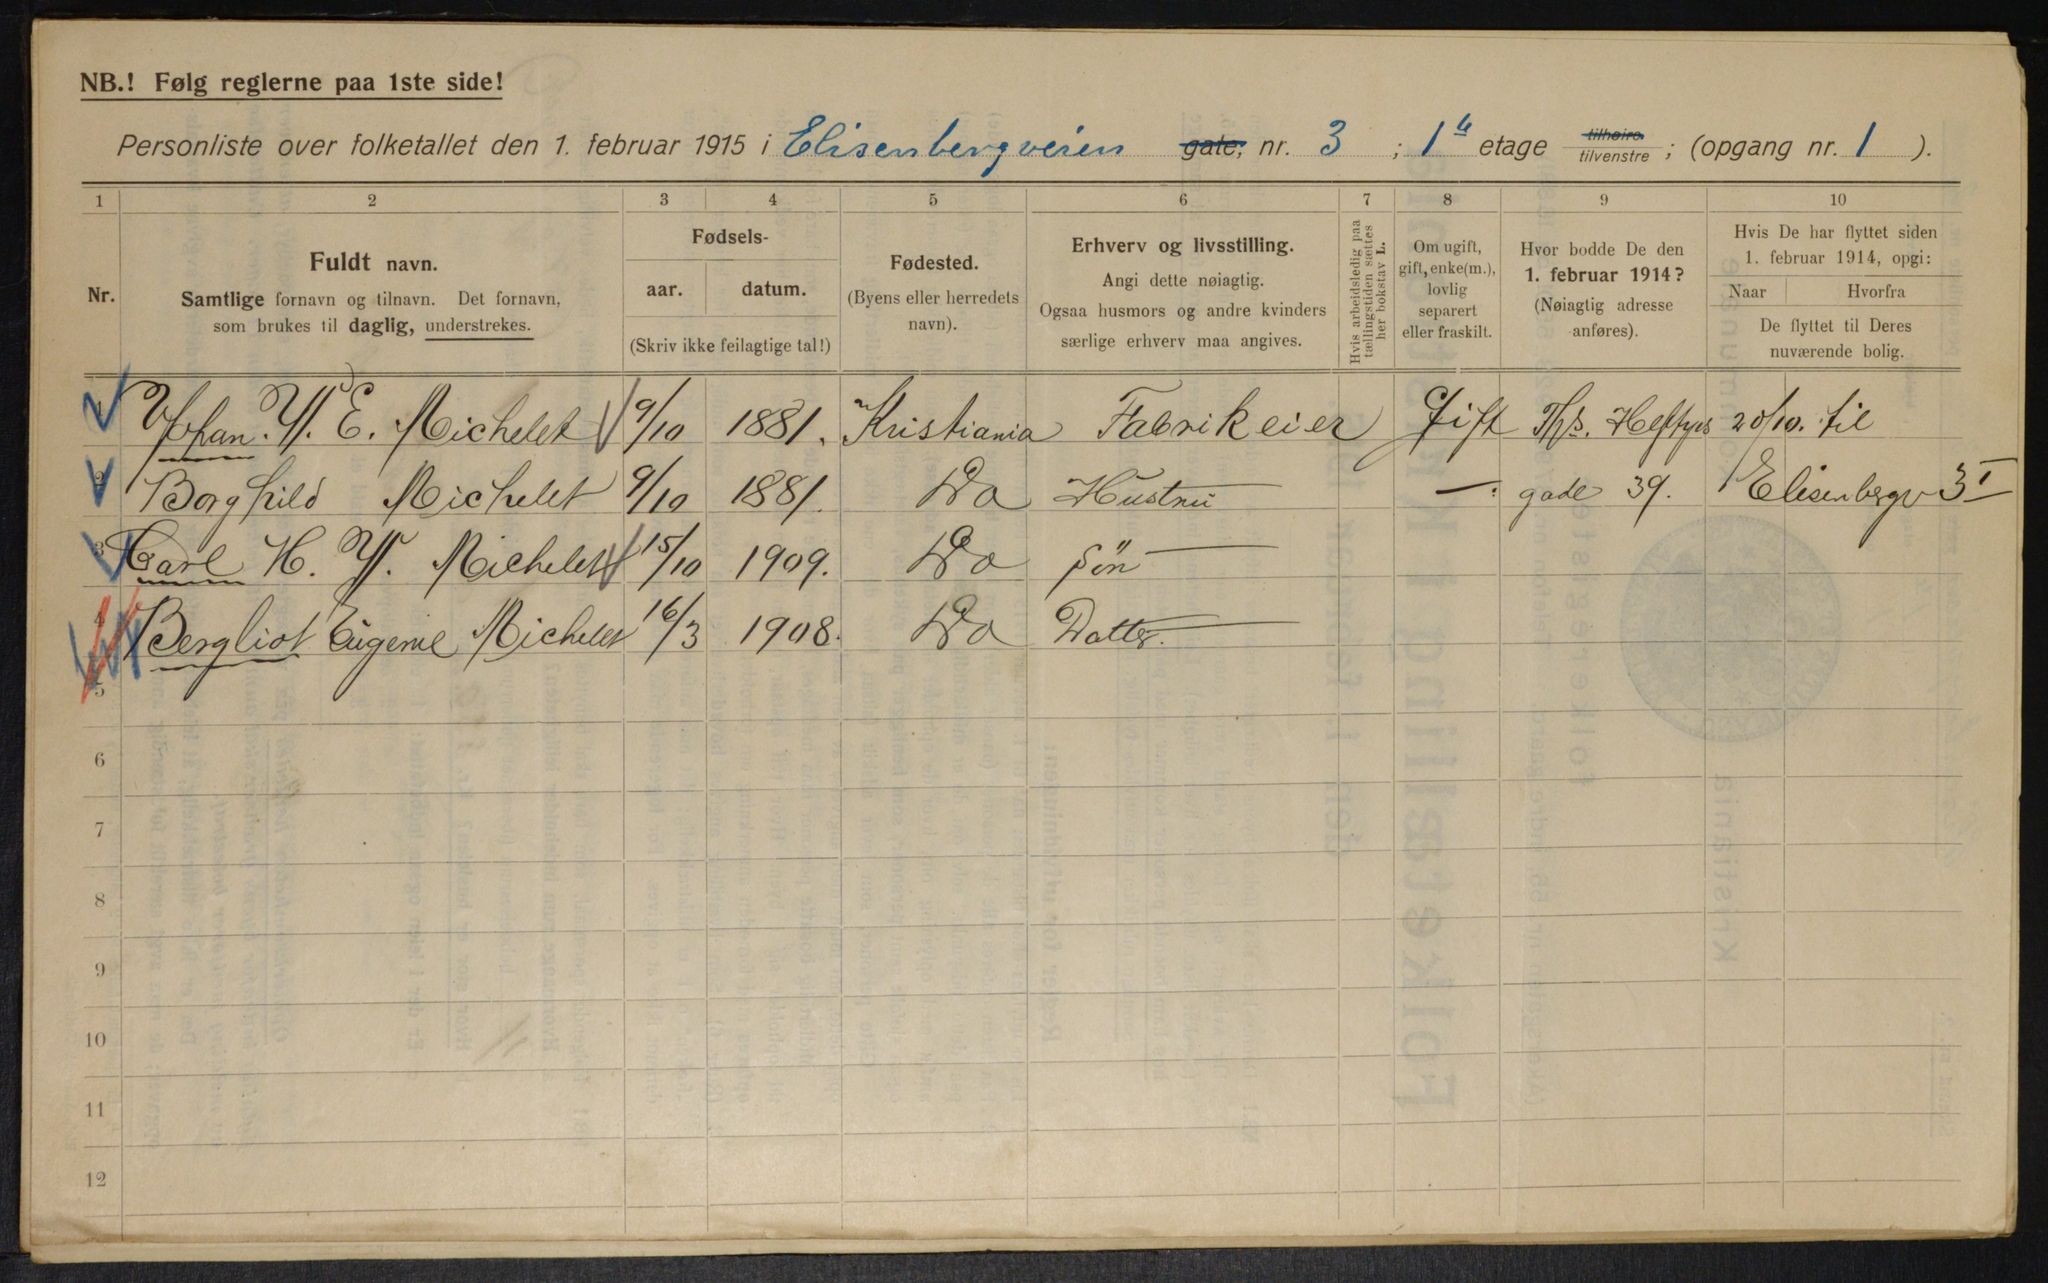 NB.! Følg reglerne paa 1ste side!
Personliste over folketallet den 1. februar 1915 i Elisenbergveien gate, nr. 3 ; 1ste etage tilhøire tilvenstre ; (opgang nr. 1 ).
1 2 3 4 5 6 7 8 9 10
Nr.
Fuldt navn.
Samtlige fornavn og tilnavn. Det fornavn,
som brukes til daglig, understrekes.
Fødsels-
aar. datum.
(Skriv ikke feilagtige tal!)
Fødested.
(Byens eller herredets
navn).
Erhverv og livsstilling.
Angi dette nøiagtig.
Ogsaa husmors og andre kvinders
særlige erhverv maa angives.
Hvis arbeidsledig paa
tællingstiden sættes
her bokstav L.
Om ugift,
gift, enke(m.),
lovlig
separert
eller fraskilt.
Hvor bodde De den
1. februar 1914?
(Nøiagtig adresse
anføres).
Hvis De har flyttet siden
1. februar 1914, opgi:
Naar Hvorfra
De flyttet til Deres
nuværende bolig.
1 Johan W. E. Michelet 9/10 1881. Kristiania Fabrikeier Gift Ths. Heftyes 20/10. til
2 Borghild Michelet 9/10 1881. Do Hustru — gade 39. Elisenbergv 3 I
3 Carl H. W. Michelet 15/10 1909. Do Søn
4 Bergliot Eugenie Michelet 16/3 1908. Do Datter.
5
6
7
8
9
10
11
12